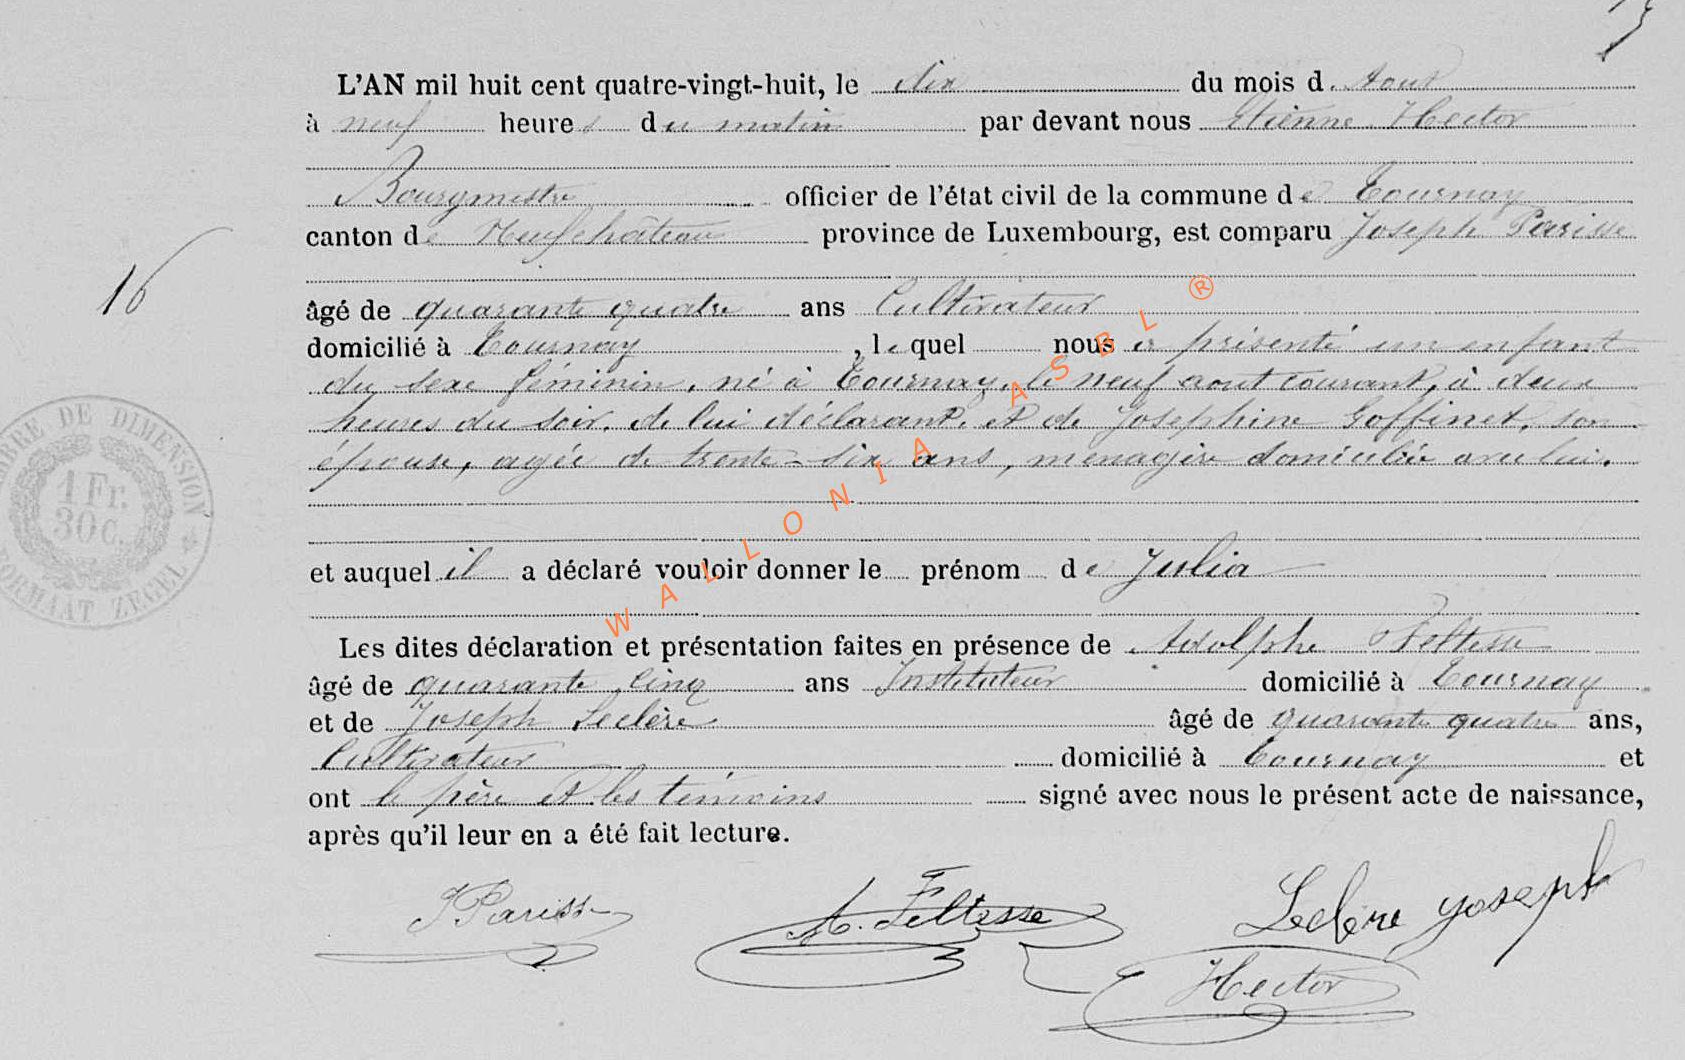 L'AN mil huit cent quatre-vingt-huit, le dix du mois d. Aout
à neuf heures du matin par devant nous Etienne Hector
Bourgmestre officier de l'état civil de la commune de Tournay
canton de Neufchâteau province de Luxembourg, est comparu Joseph Parisse
16
âgé de quarante quatre ans Cultivateur
domicilié à Tournay, lequel nous a présenté un enfant
du sexe féminin, né à Tournay, le neuf aout courant, à deux
heures du soir, de lui déclarant, et de Josephine Goffinet, son
épouse, agée de trente-six ans, ménagère domiciliée avec lui.
et auquel il a déclaré vouloir donner le prénom de Julia
Les dites déclaration et présentation faites en présence de Adolphe Feltesse
âgé de quarante cinq ans Instituteur domicilié à Tournay
et de Joseph Leclère âgé de quarante quatre ans,
Cultivateur domicilié à Tournay et
ont le père et les témoins signé avec nous le présent acte de naissance,
après qu'il leur en a été fait lecture.
J Parisse A. Feltesse Leclère Joseph
Hector
TIMBRE DE DIMENSION
1 Fr.
30 c.
FORMAAT ZEGEL
WALLONIA ASBL ®